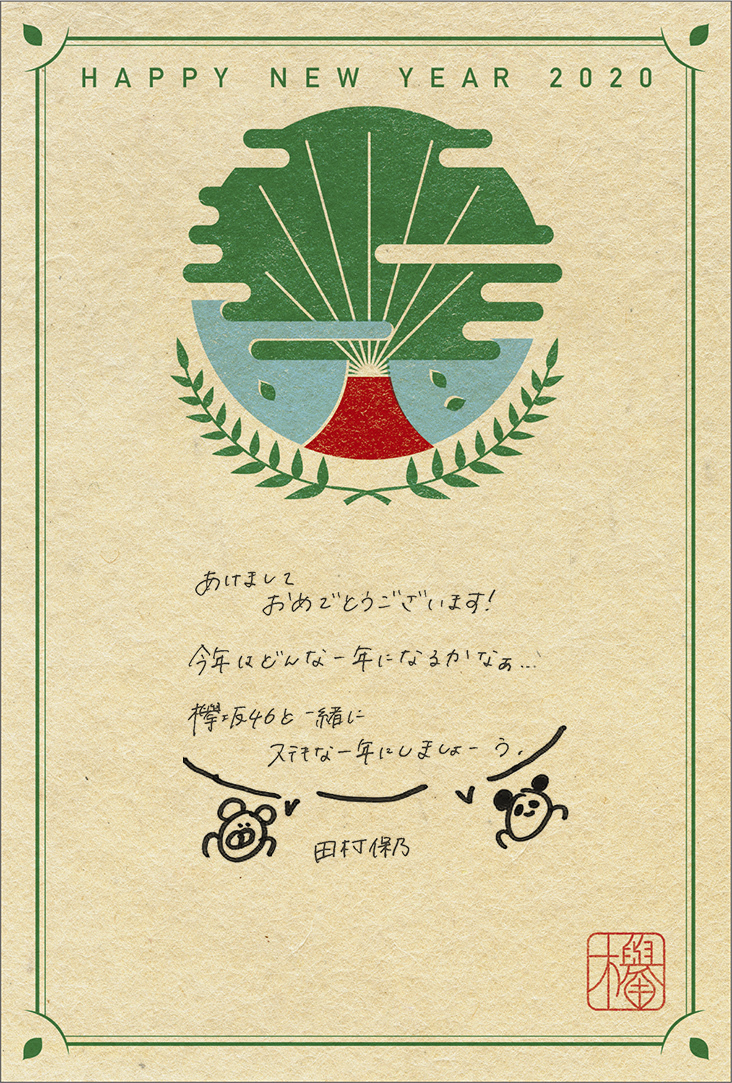 HAPPY NEW YEAR 2020
あけまして
おめでとうございます!
今年はどんな一年になるかなぁ...
欅坂46と一緒に
ステキな一年にしましょーう。
田村保乃
欅